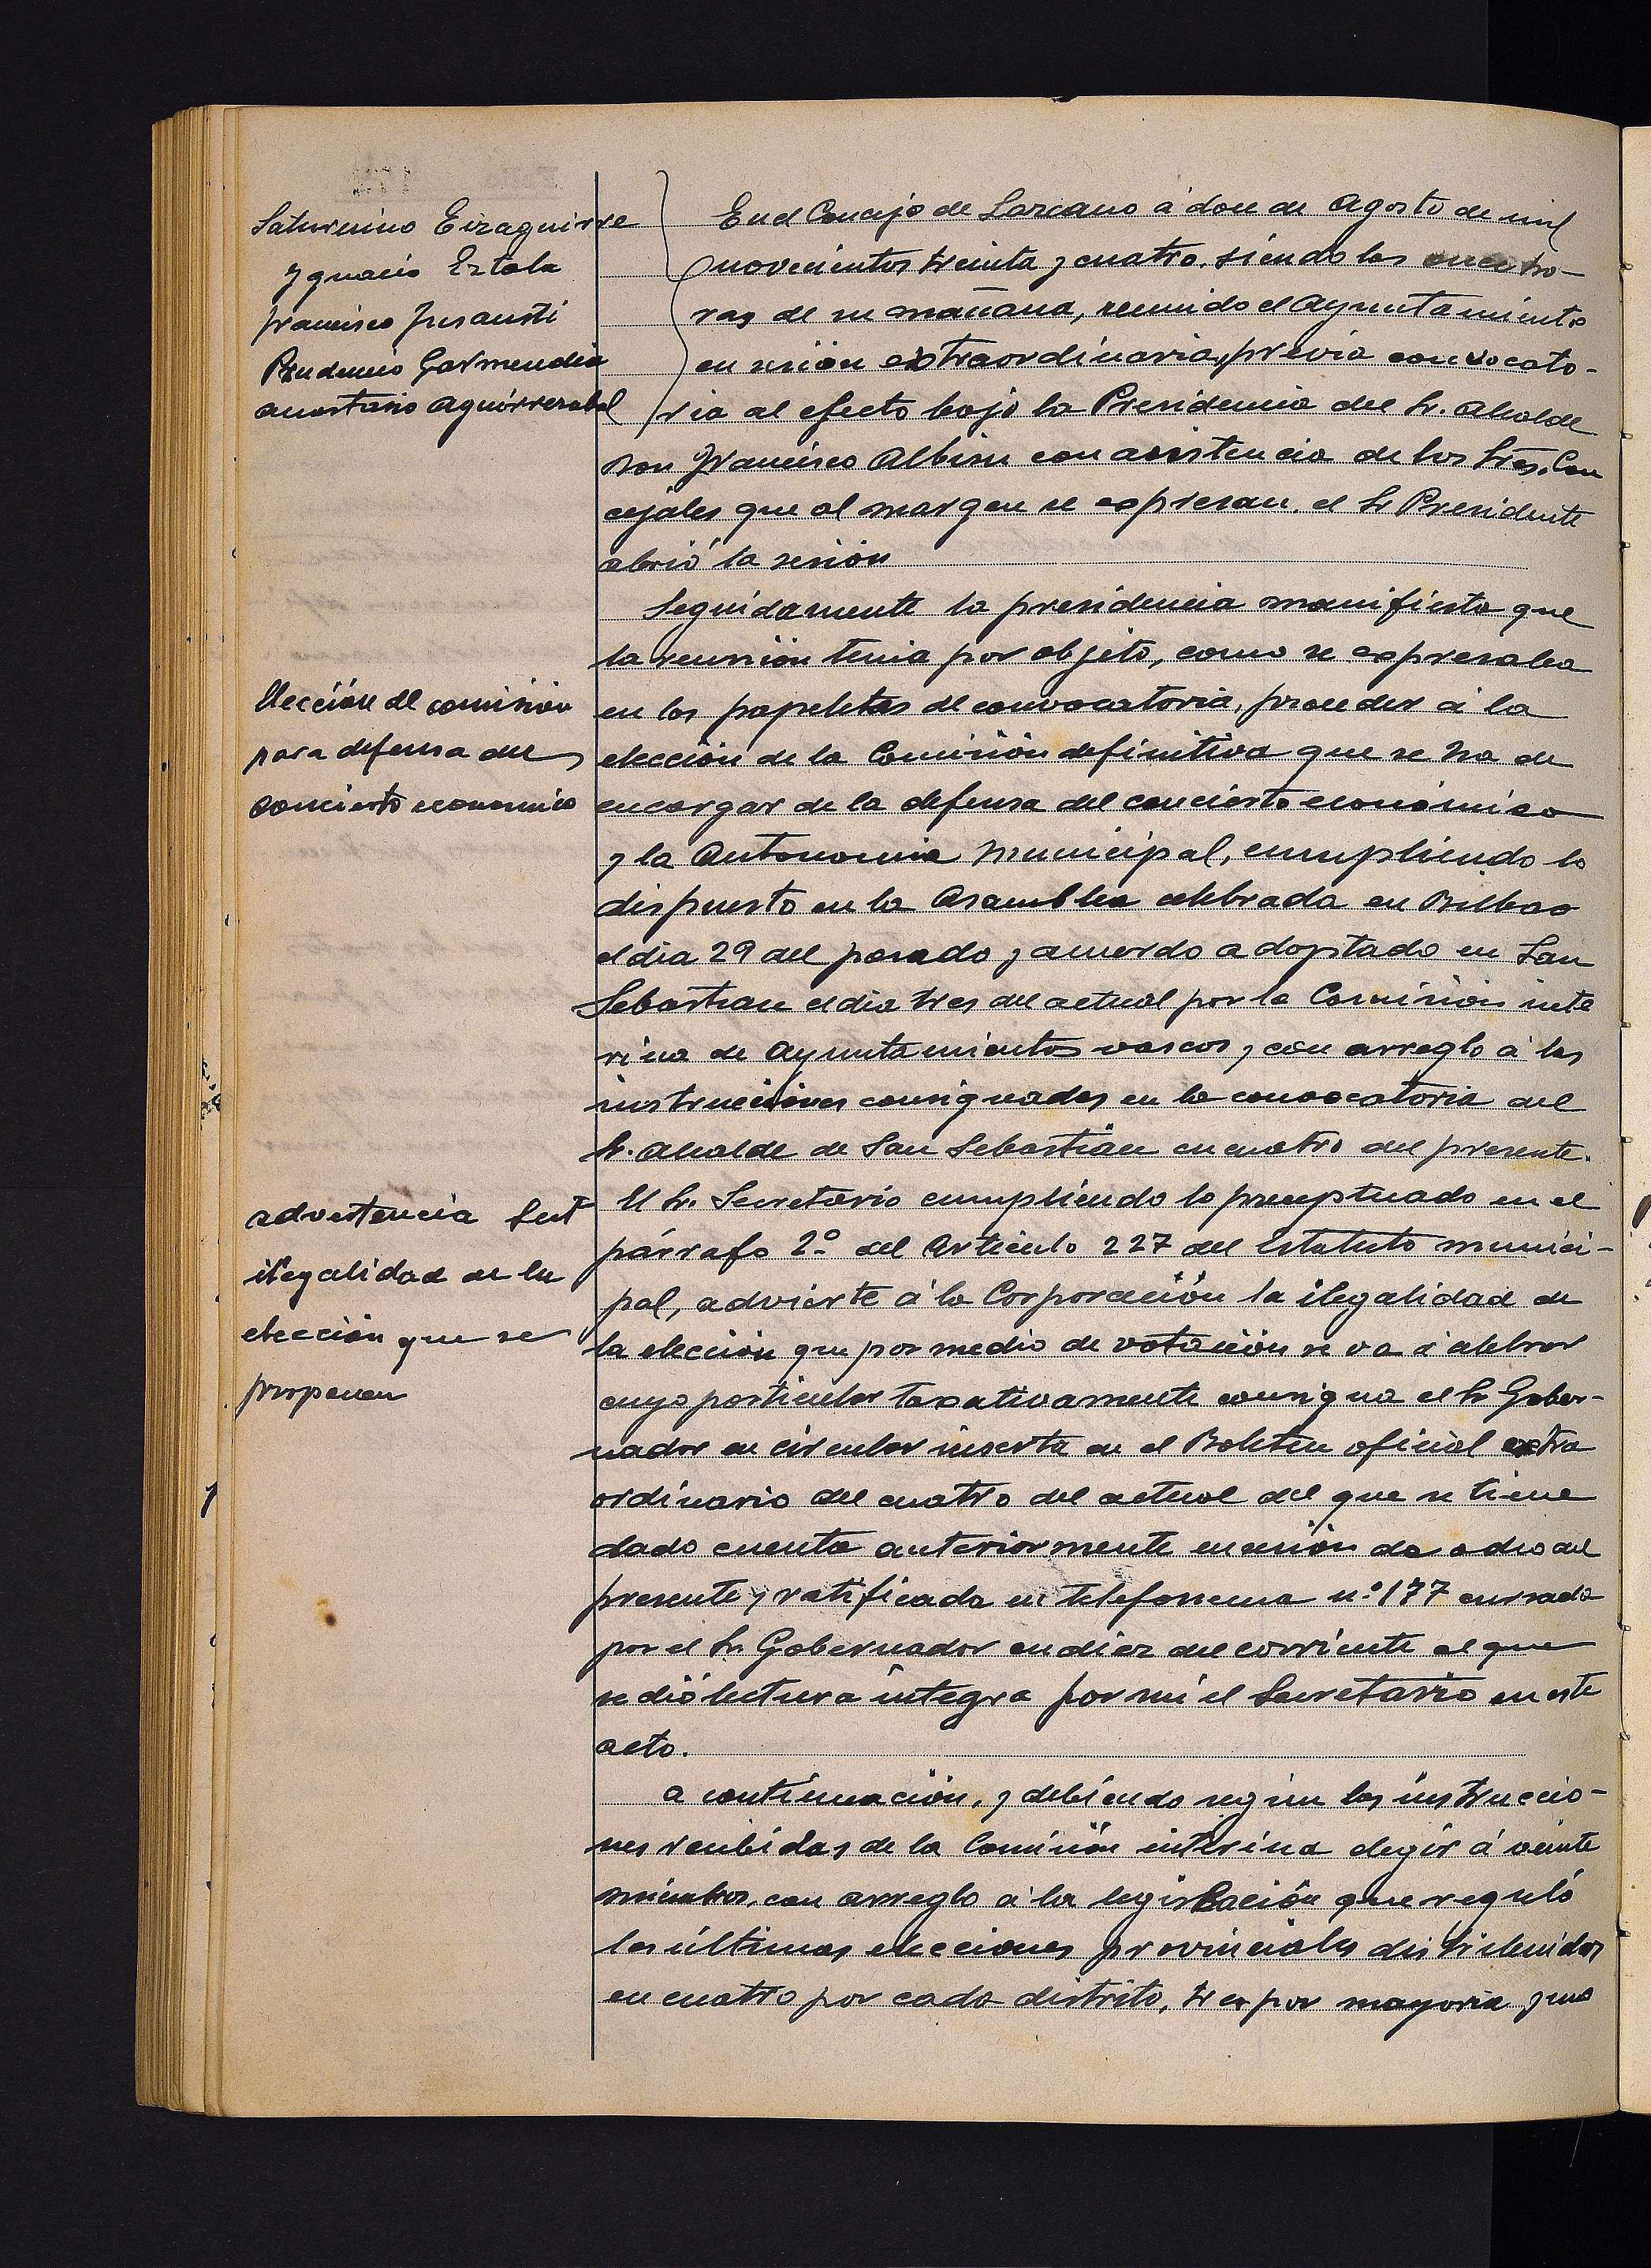 Saturnino Eizaguirre
Ygnacio Estala
Francisco Jusausti
Prudencio Garmendia
Anastasio Aguirrezabal
En el Concejo de Lazcano á doce de Agosto de mil
novecientos treinta y cuatro, siendo las once ho-
ras de su mañana, reunido el Ayuntamiento
en sesión extraordinaria, previa convocato-
ria al efecto bajo la Presidencia del Sr. Alcalde
Don Francisco Albisu con asistencia de los Sres. Con
cejales que al margen se expresan. el Sr Presidente
abrió la sesión
Seguidamente la presidencia manifiesta que
la reunión tenia por objeto, como se expresaba
Elección de comisión
para defensa del
concierto economico
en las papeletas de convocatoria, proceder á la
elección de la Comisión definitiva que se ha de
encargar de la defensa del concierto económico
y la Autonomia Municipal, cumpliendo lo
dispuesto en la Asamblea celebrada en Bilbao
el dia 29 del pasado y acuerdo adoptado en San
Sebastian el dia tres del actual por la Comisión inte
rina de Ayuntamientos vascos y con arreglo á las
instrucciones consignadas en la convocatoria del
Sr. Alcalde de San Sebastián en cuatro del presente.
advertencia
ilegalidad de la
elección que se
proponen
El Sr. Secretario cumpliendo lo preceptuado en el
párrafo 2º del Articulo 227 del Estatuto munici-
pal, advierte á la Corporación la ilegalidad de
la elección que por medio de votación se va á celebrar
cuyo particular taxativamente consigna el Sr Gober-
nador en circular inserta en el Boletin oficial extra
ordinario del cuatro del actual del que se tiene
dado cuenta anteriormente en sesión de ocho del
presente y ratificada en telefonema nº 177 cursada
por el Sr. Gobernador en diez del corriente al que
se dió lectura integra por mi el Secretario en este
acto.
a continuación, y debiendo según las instruccio-
nes recibidas de la Comisión interina elegir á veinte
miembros, con arreglo á la legislación que reguló
las últimas elecciones provinciales distribuidos
en cuatro por cada distrito, tres por mayoria y uno